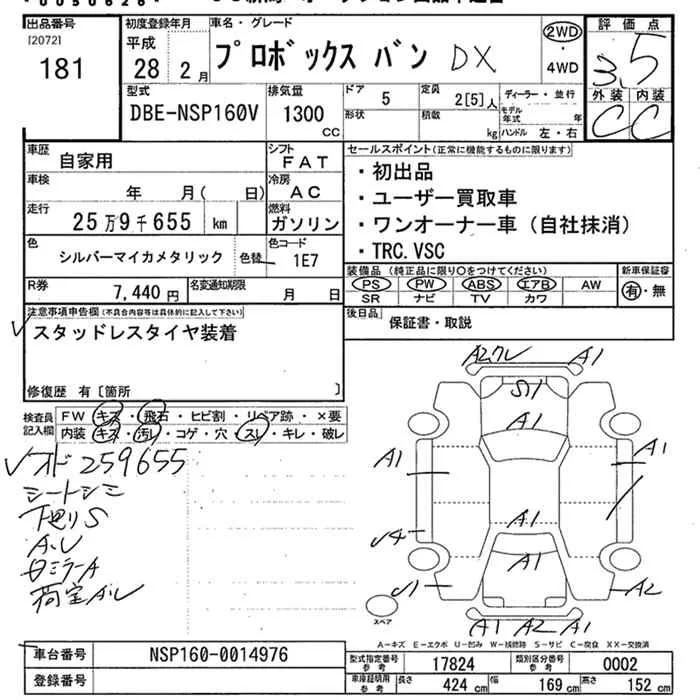 出品番号
[2072]
181
初度登録年月
平成
28 2月
車名・グレード
プロボックス バン DX
2WD
・
4WD
評価点
3.5
外装 内装
C C
型式
DBE-NSP160V
排気量
1300
CC
ドア
5
定員
2[5]人
ディーラー・並行
形状
積載
kg
モデル
年式 年
ハンドル 左・右
車歴
自家用
シフト
FAT
車検
年 月( 日)
冷房
AC
走行
25万9千655 km
燃料
ガソリン
色
シルバーマイカメタリック
色替
色コード
1E7
R券
7,440円
名変通知期限
月 日
セールスポイント(正常に機能するものに限ります)
・初出品
・ユーザー買取車
・ワンオーナー車(自社抹消)
・TRC.VSC
装備品(純正品に限り○をつけてください)
PS PW ABS エアB AW
SR ナビ TV カワ
新車保証書
有・無
後日品
保証書・取説
注意事項申告欄(不具合内容等は具体的に記入して下さい)
スタッドレスタイヤ装着
修復歴 有[箇所 ]
検査員
記入欄
FW キズ・飛石・ヒビ割・リペア跡・×要
内装 キズ・汚レ・コゲ・穴・スレ・キレ・破レ
オド259655
シートシミ
下廻りS
A.U
ミラーA
荷室A.U
A2 A1
S1
A1
A1 A1
A1
A1
A2
A1 A2 A1
スペア
A-キズ E-エクボ U-凹み W-板修跡 S-サビ C-腐食 XX-交換済
車台番号
NSP160-0014976
登録番号
型式指定番号
参考
17824
類別区分番号
参考
0002
車庫証明用
参考
長さ 424 cm
幅 169 cm
高さ 152 cm